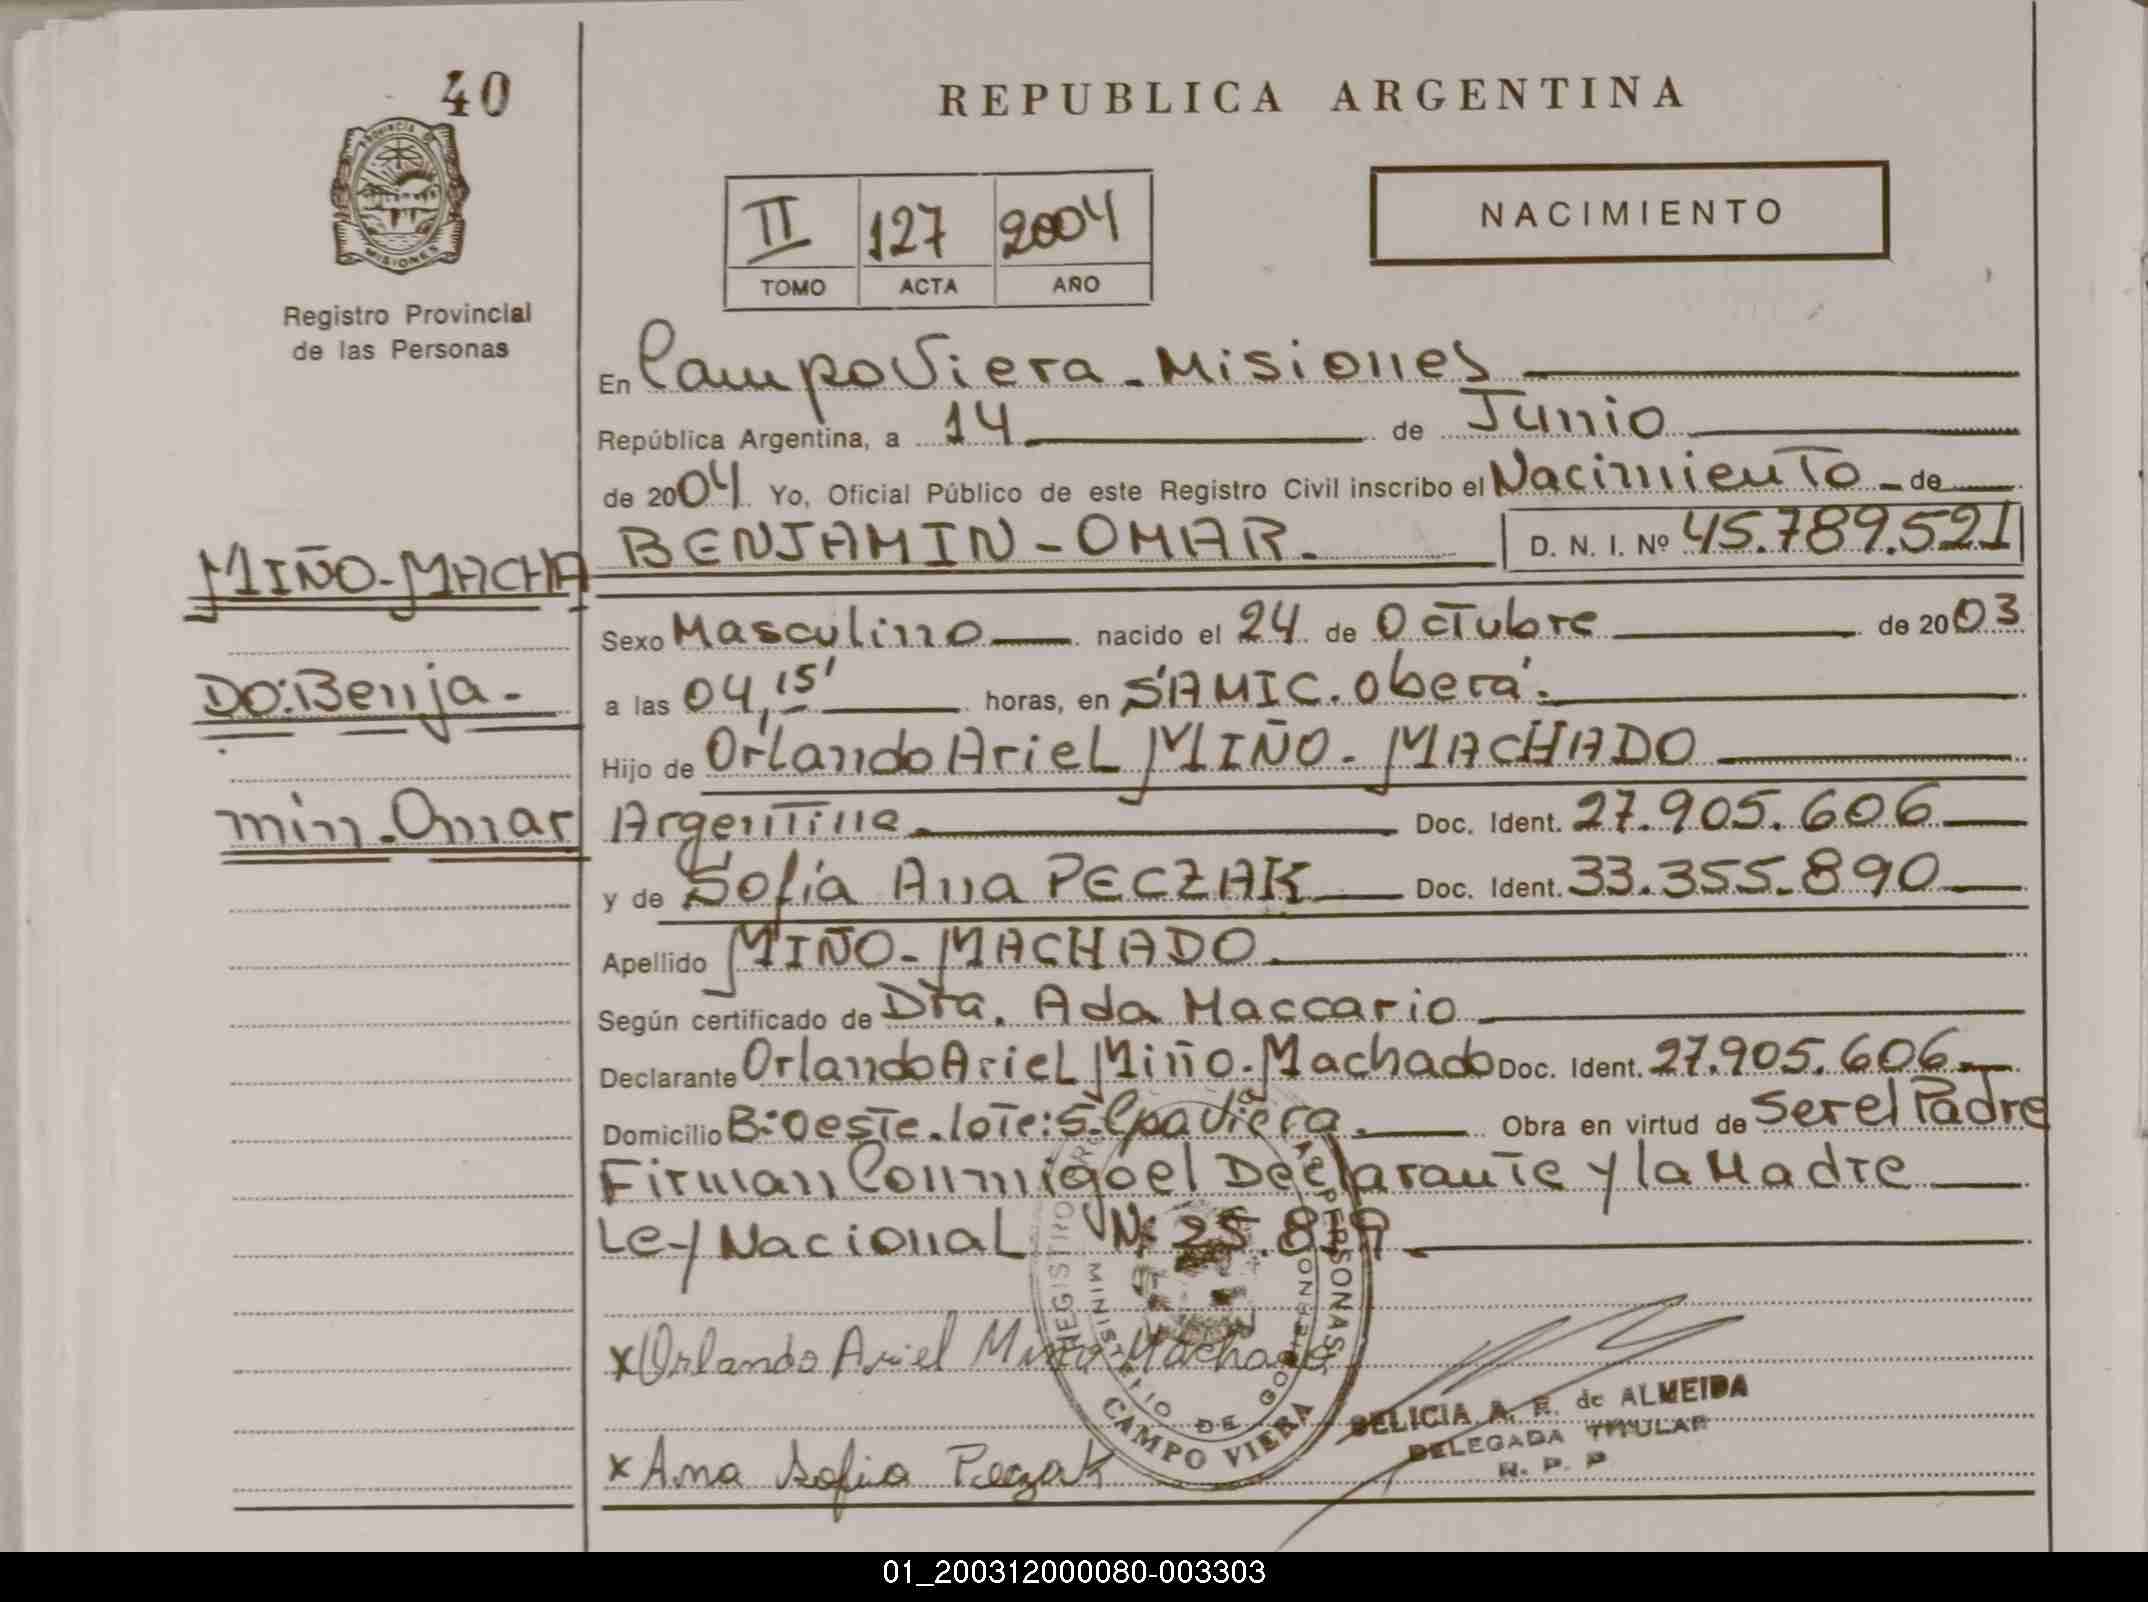 40
REPUBLICA ARGENTINA
PROVINCIA DE
MISIONES
Registro Provincial
de las Personas
NACIMIENTO
II 127 2004
TOMO ACTA AÑO
En Campo Viera - Misiones
República Argentina, a 14 de Junio
de 2004 Yo, Oficial Público de este Registro Civil inscribo el Nacimiento - de
BENJAMIN - OMAR. D. N. I. Nº 45.789.521
MIÑO-MACHA
DO: Benja-
min-Omar
Sexo Masculino nacido el 24 de Octubre de 2003
a las 04,15' horas, en SAMIC. Oberá.
Hijo de Orlando Ariel MIÑO - MACHADO
Argentina Doc. Ident. 27.905.606
y de Sofía Ana PECZAK Doc. Ident. 33.355.890
Apellido MIÑO - MACHADO
Según certificado de Dra. Ada Maccario
Declarante Orlando Ariel Miño - Machado Doc. Ident. 27.905.606
Domicilio B: Oeste. lote: 5. Cpo Viera. Obra en virtud de Ser el Padre
Firman Conmigo el Declarante y la Madre
Ley Nacional Nº 25.819
x Orlando Ariel Miño Machado
x Ana Sofia Peczak
REGISTRO PERSONAS
MINISTERIO DE GOBIERNO
CAMPO VIERA
DELICIA A. E. de ALMEIDA
DELEGADA TITULAR
R. P. P
01_200312000080-003303